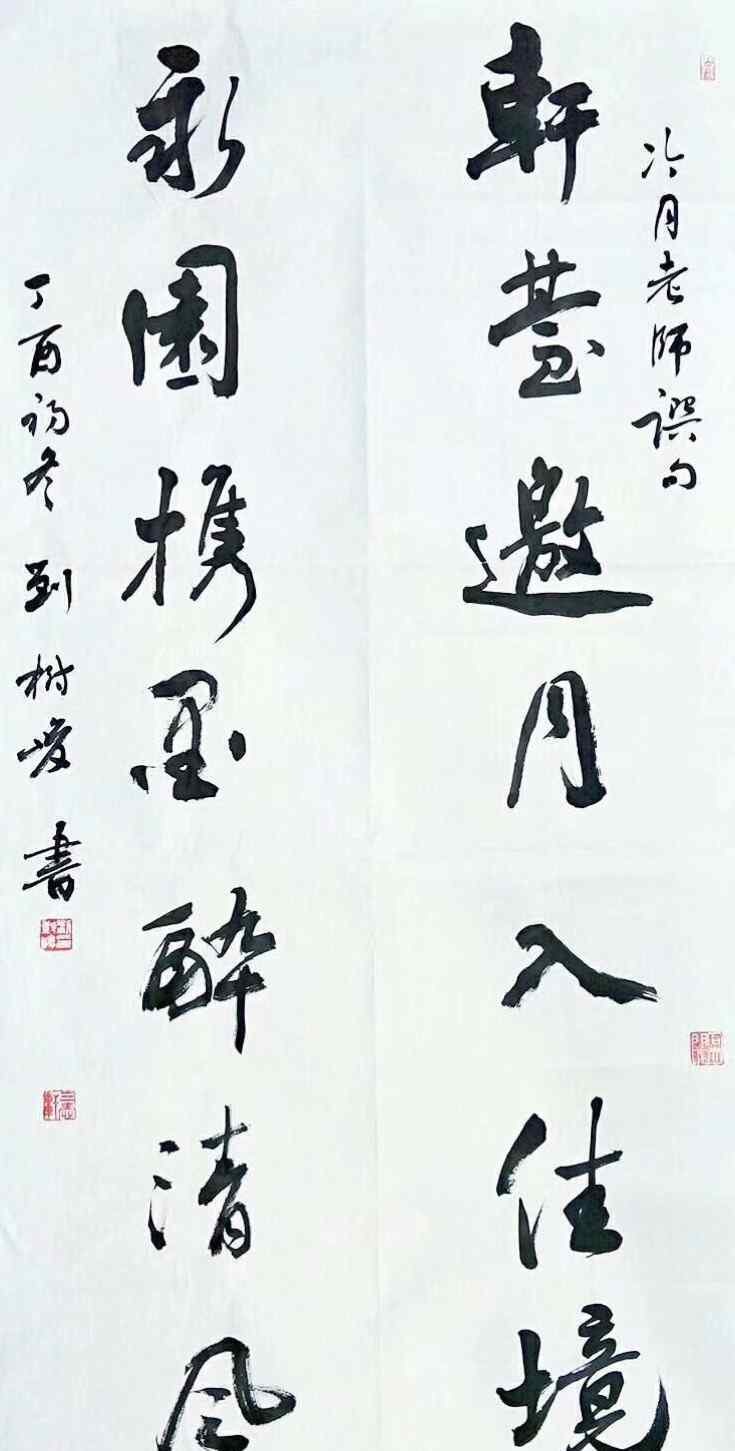 冷月老師譔句
軒臺邀月入佳境
永園携墨醉清风
丁酉初冬 劉樹峻 書